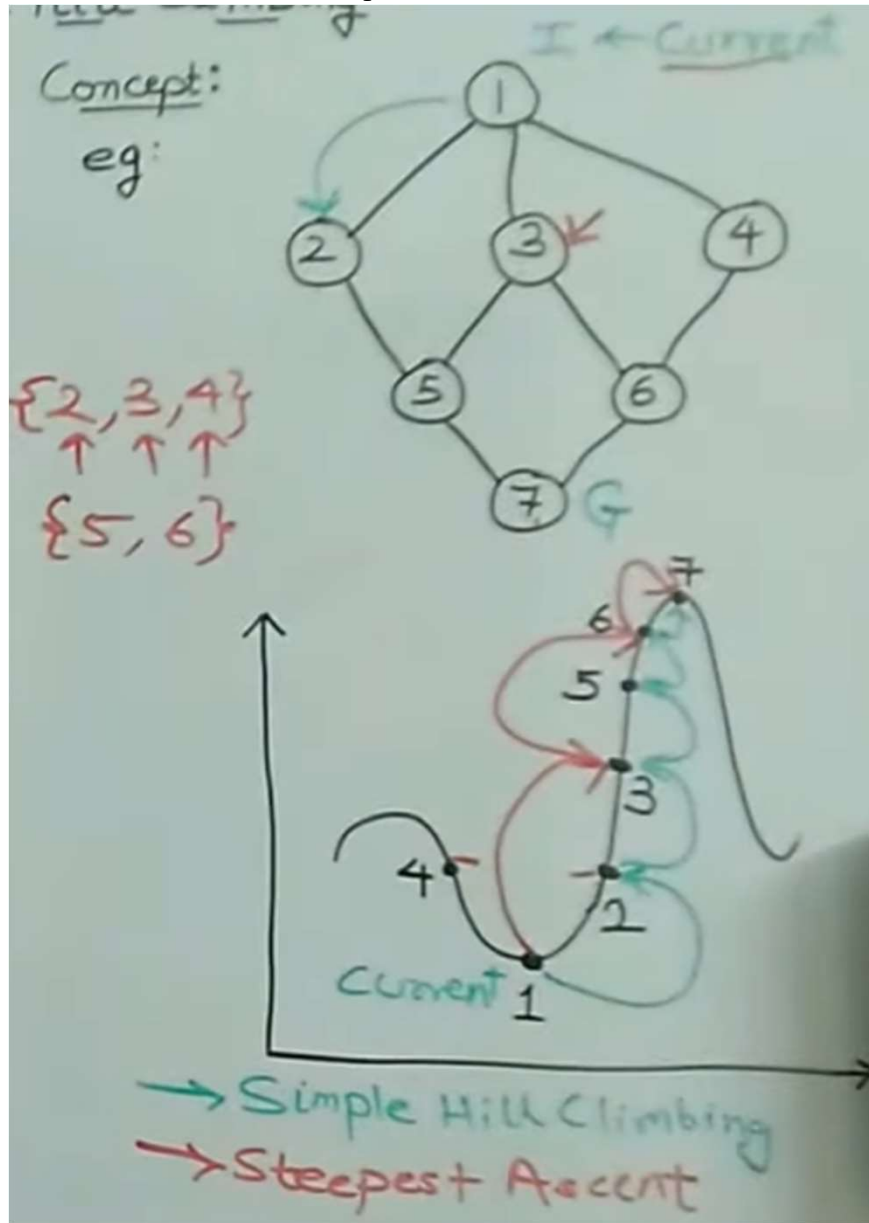 Hill Climbing
Concept:
eg:
I ← Current
1
2 3 4
5 6
7 G
{2, 3, 4}
↑ ↑ ↑
{5, 6}
7
6
5
3
4
2
Current 1
→ Simple Hill Climbing
→ Steepest Ascent